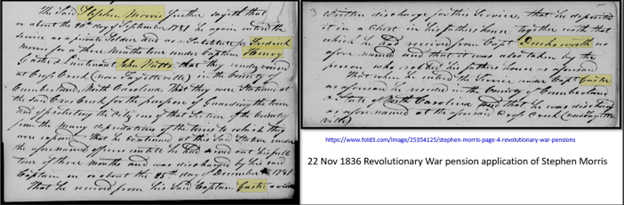 The Said Stephen Morris further sayeth that
on or about the 25th day of September 1781 he again entered the
service as a private Soldier and a Substitute for Frederick
Morris for a three Months tour under Captain Henry
Carter & Lieutenant John Watts that they rendezvoused
at Cross Creek (now Fayetteville) in the County of
Cumberland, North Carolina. That they were Stationed at
the said Cross Creek for the purpose of Guarding the town
and of protecting the citizens of that Section of the Country
from the many depredations of the tories to which they
were exposed. that he continued at this Said Station under
the aforenamed officers until he had served out his full
tour of three months and was discharged by his said
Captain on or about the 25th day of December 1781
That he received from his Said Captain Carter a written
3
Written discharge for this Service, that he deposited
it in a Chest in his fathers house together with that
which he had received from Capt
afore named and that it was also taken by the
tories who robbed his fathers house as aforesaid
That when he entered the Service under Capt Carter
as aforesaid he resided in the County of Cumberland
State of North Carolina and that he was discharged
as aforenamed at the aforesaid Cross Creek (now Fayette
ville)
https://www.fold3.com/image/25354125/stephen-morris-page-4-revolutionary-war-pensions
22 Nov 1836 Revolutionary War pension application of Stephen Morris